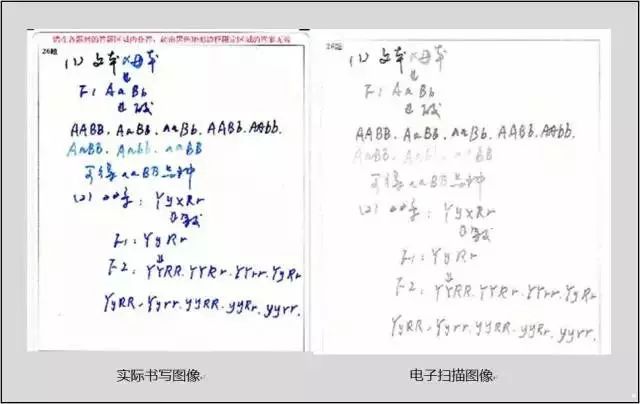 请在各题目的答题区域内作答，超出黑色矩形边框限定区域的答案无效
26题
(1) 父本×母本
↓
F1: AaBb
↓
AABB. AaBb. aaBb. AABb. AAbb.
AaBB. Aabb. aaBB
可得aaBB品种
(2) 亲本: Yy×Rr
↓
F1: YyRr
↓
F2: YYRR. YYRr. YYrr. YyRr
YyRR. Yyrr. yyRR. yyRr. yyrr.
实际书写图像
26题
(1) 父本×母本
↓
F1: AaBb
↓
AABB. AaBb. aaBb. AABb. AAbb.
AaBB. Aabb. aaBB
可得aaBB品种
(2) 亲本: Yy×Rr
↓
F1: YyRr
↓
F2: YYRR. YYRr. YYrr. YyRr
YyRR. Yyrr. yyRR. yyRr. yyrr.
电子扫描图像